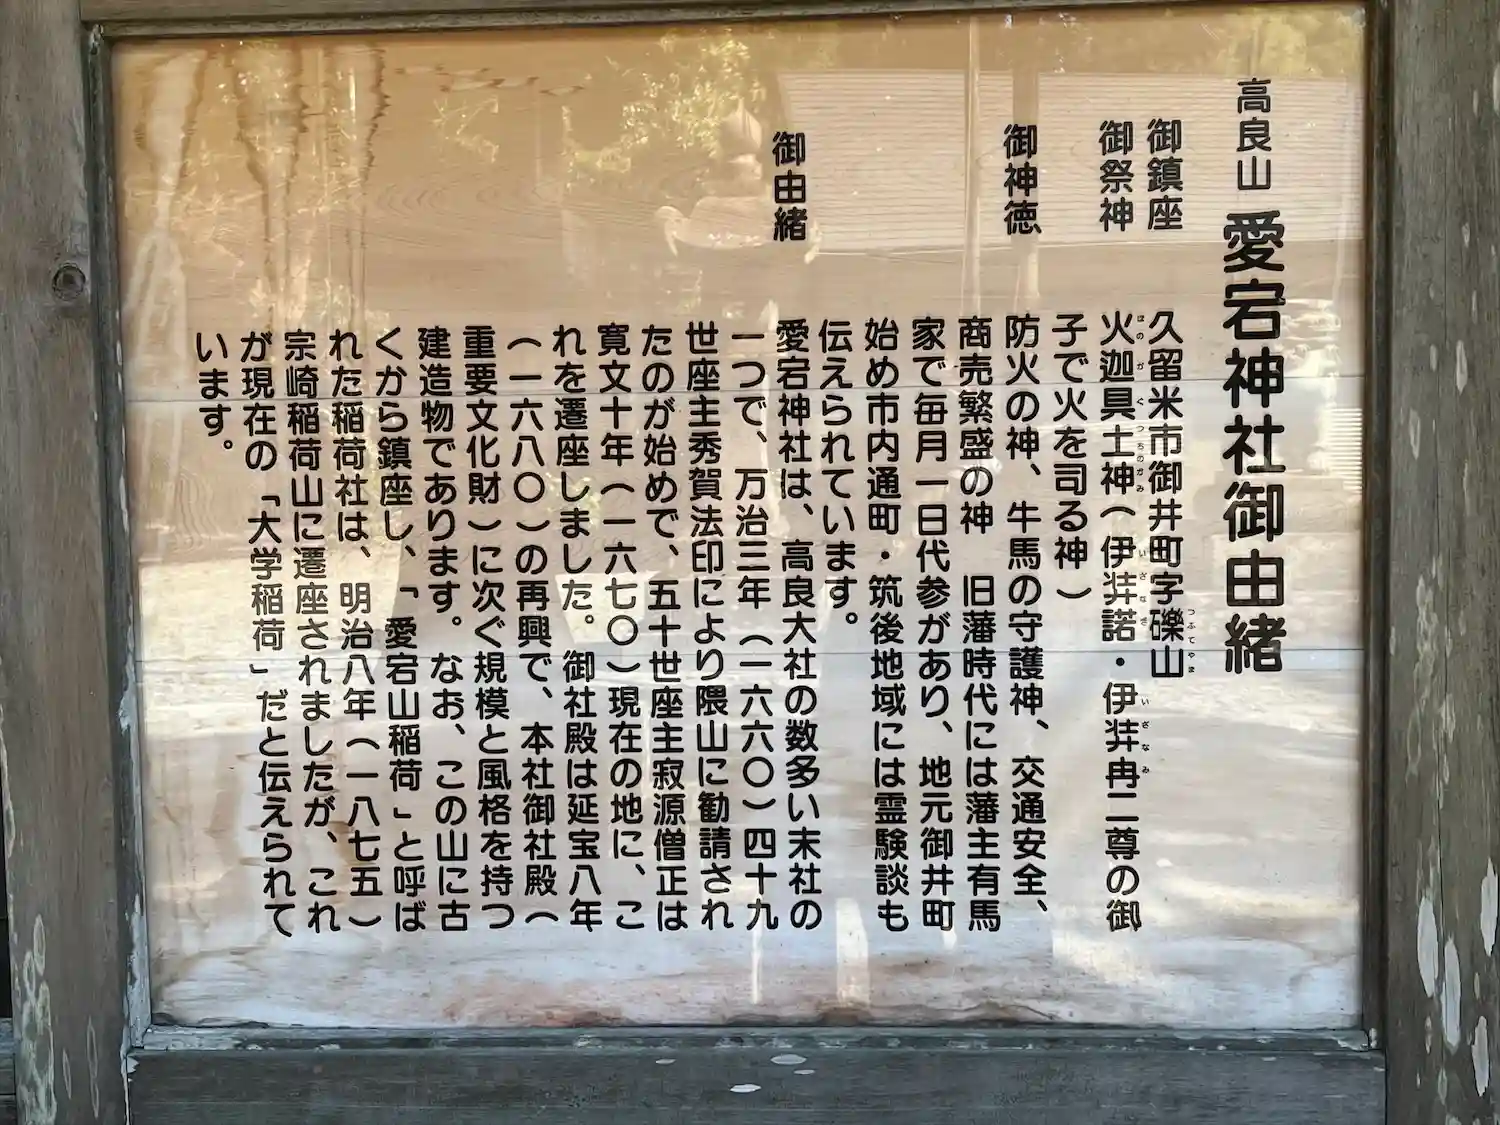 高良山 愛宕神社御由緒
御鎮座 久留米市御井町字礫山
つぶてやま
御祭神 火迦具土神(伊弉諾・伊弉冉二尊の御
ほのかぐつちのかみ いざなぎ いざなみ
子で火を司る神)
御神徳 防火の神、牛馬の守護神、交通安全、
商売繁盛の神 旧藩時代には藩主有馬
家で毎月一日代参があり、地元御井町
始め市内通町・筑後地域には霊験談も
伝えられています。
御由緒 愛宕神社は、高良大社の数多い末社の
一つで、万治三年(一六六〇)四十九
世座主秀賀法印により隈山に勧請され
たのが始めで、五十世座主寂源僧正は
寛文十年(一六七〇)現在の地に、こ
れを遷座しました。御社殿は延宝八年
(一六八〇)の再興で、本社御社殿(
重要文化財)に次ぐ規模と風格を持つ
建造物であります。なお、この山に古
くから鎮座し、「愛宕山稲荷」と呼ば
れた稲荷社は、明治八年(一八七五)
宗崎稲荷山に遷座されましたが、これ
が現在の「大学稲荷」だと伝えられて
います。